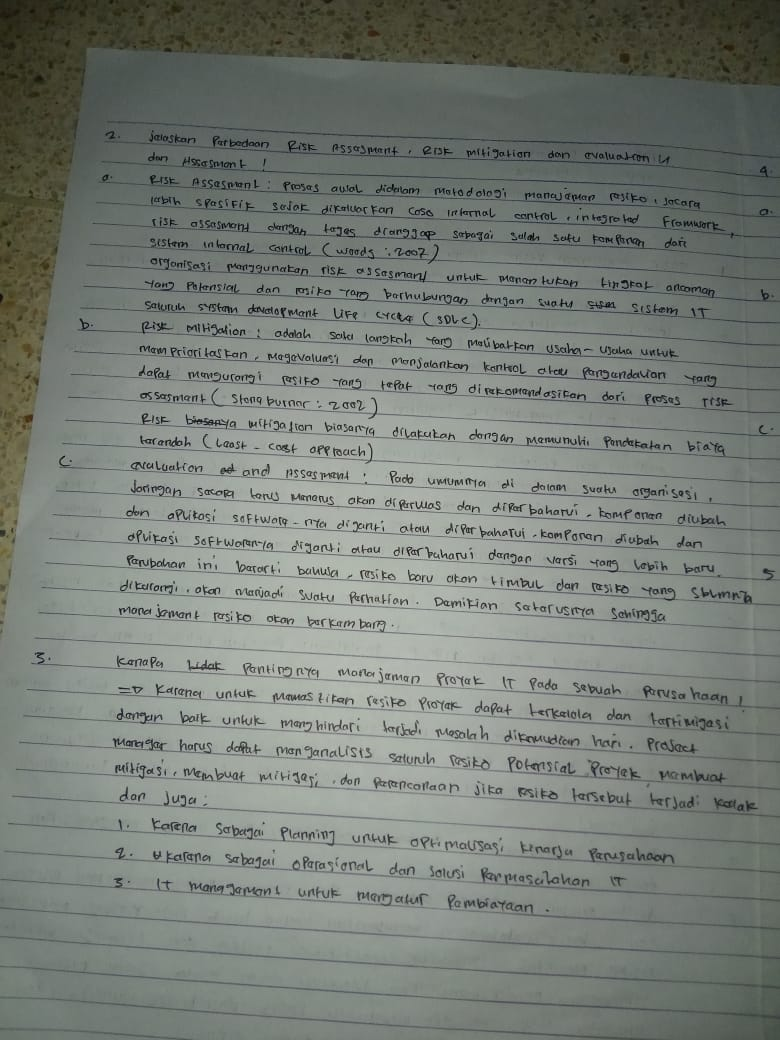 2. Jelaskan Perbedaan Risk Assesment, Risk mitigation dan evaluation
dan Assesment !
a. Risk Assesment : Proses awal didalam metodologi manajemen resiko, secara
lebih spesifik sejak dikeluarkan coso internal control, integrated Framwork,
risk assesment dengan tegas dianggap sebagai salah satu komponen dari
sistem internal control (woods : 2002)
organisasi menggunakan risk assesment untuk menentukan tingkat ancaman
yang potensial dan resiko yang berhubungan dengan suatu sistem IT
seluruh system development Life cycle (SDLC).
b. Risk mitigation : adalah satu langkah yang melibatkan usaha-usaha untuk
memprioritaskan, megevaluasi dan menjalankan kontrol atau pengendalian yang
dapat mengurangi resiko yang tepat yang direkomendasikan dari proses risk
assesment (Stoneburner : 2002)
Risk biasanya mitigation biasanya dilakukan dengan memenuhi pendekatan biaya
terendah (Least-cost approach)
c. evaluation and Assesment : Pada umumnya di dalam suatu organisasi,
Jaringan secara terus menerus akan diperluas dan diperbaharui. komponen diubah
dan aplikasi software-nya diganti atau diperbaharui. komponen diubah dan
aplikasi softwarenya diganti atau diperbaharui dengan versi yang lebih baru.
Perubahan ini berarti bahwa, resiko baru akan timbul dan resiko yang sblmnya
dikurangi, akan menjadi suatu perhatian. Demikian seterusnya sehingga
manajement resiko akan berkembang.
3. Kenapa Pentingnya manajemen Proyek IT pada sebuah perusahaan !
=> Karena untuk memastikan resiko proyek dapat terkelola dan termitigasi
dengan baik untuk menghindari terjadi masalah dikemudian hari. Project
manager harus dapat menganalisis seluruh resiko potensial proyek membuat
mitigasi, membuat mitigasi, dan perencanaan jika resiko tersebut terjadi kelak
dan juga :
1. Karena sebagai planning untuk optimalisasi kinerja perusahaan
2. karena sebagai operasional dan solusi permasalahan IT
3. It management untuk mengatur pembiayaan.
a.
b.
c.
5